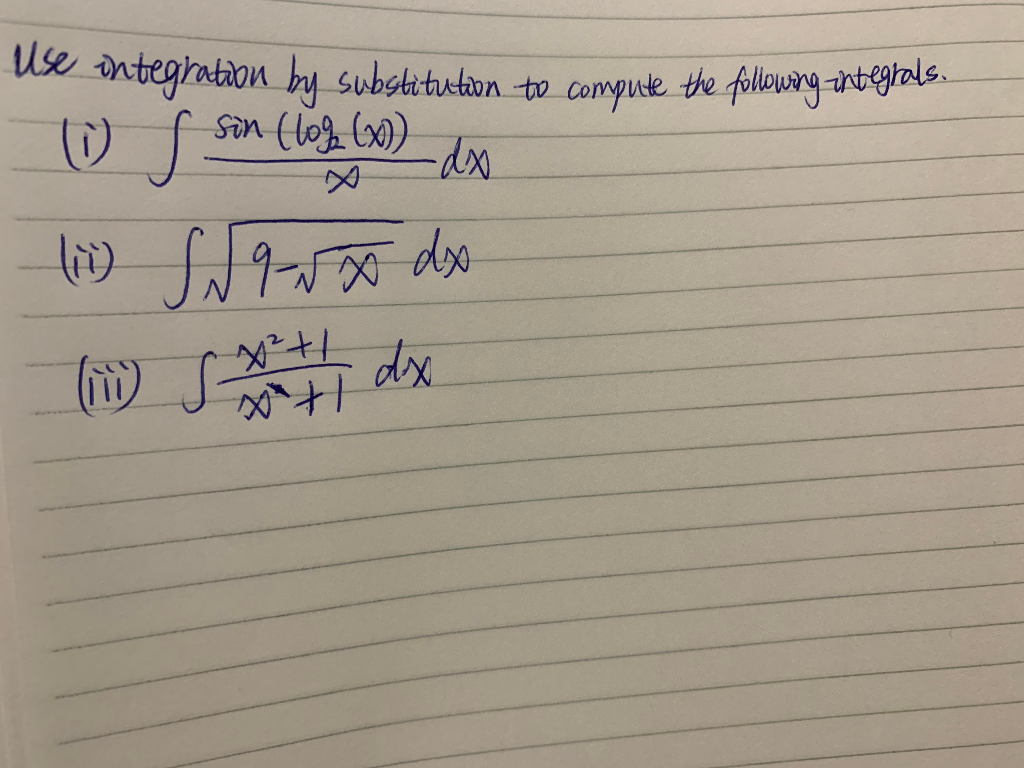 Use integration by substitution to compute the following integrals.
(i) ∫ sin (log₂ (x)) / x dx
(ii) ∫ √(9-√x) dx
(iii) ∫ (x²+1) / (x +1) dx